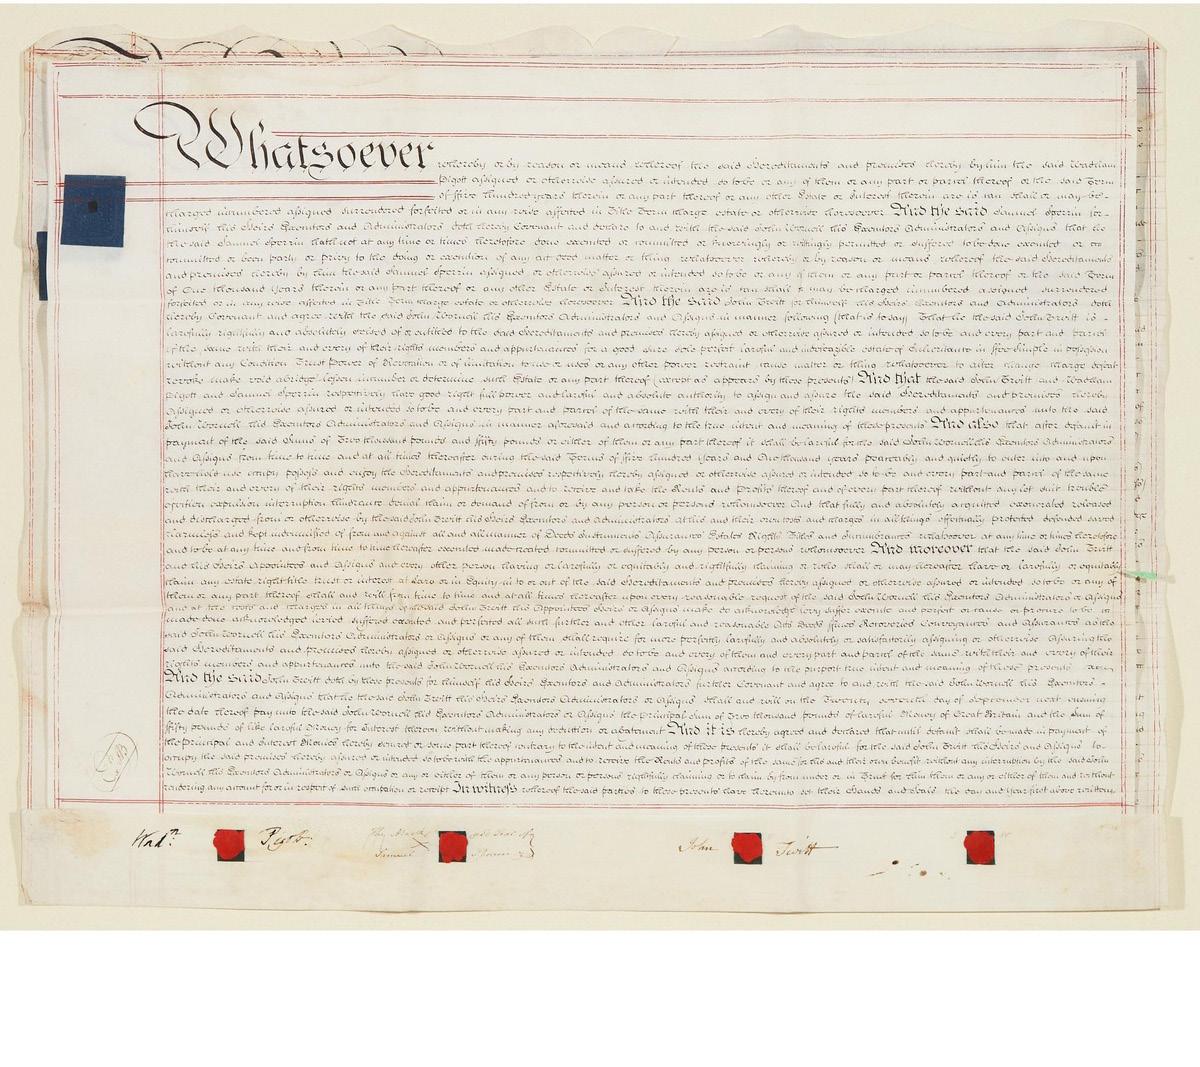 Whatsoever whereby or by reason or means whereof the said Hereditaments and premises hereby by him the said Wadham
Pigott assigned or otherwise assured or intended so to be or any of them or any part or parcel thereof or the said Term
of ffive hundred years therein or any part thereof or any other Estate or Interest therein are is can shall or may be
charged incumbered assigned surrendered forfeited or in any wise affected in Title Term charge estate or otherwise howsoever And the said Samuel Sperrin for
himself his Heirs Executors and Administrators doth hereby Covenant and declare to and with the said John Wornell his Executors Administrators and Assigns that he
the said Samuel Sperrin hath not at any time or times heretofore done executed or committed or knowingly or wittingly permitted or suffered to be done executed or
committed or been party or privy to the doing or execution of any act deed matter or thing whatsoever whereby or by reason or means whereof the said Hereditaments
and premises hereby by him the said Samuel Sperrin assigned or otherwise assured or intended so to be or any of them or any part or parcel thereof or the said Term
of One thousand years therein or any part thereof or any other Estate or Interest therein are is can shall or may be charged incumbered assigned surrendered
forfeited or in any wise affected in Title Term charge estate or otherwise howsoever And the said John Twitt for himself his Heirs Executors and Administrators doth
hereby Covenant and agree with the said John Wornell his Executors Administrators and Assigns in manner following (that is to say) That he the said John Twitt is
lawfully rightfully and absolutely seized of or entitled to the said Hereditaments and premises hereby assigned or otherwise assured or intended so to be and every part and parcel
of the same with their and every of their rights members and appurtenances for a good sure sole perfect lawful and indefeazible estate of Inheritance in ffee simple in possession
without any Condition Trust Power of Revocation or of limitation to use or uses or any other power restraint cause matter or thing whatsoever to alter change charge defeat
revoke make void abridge lessen incumber or determine such Estate or any part thereof (except as appears by these presents) And that the said John Twitt and Wadham
Pigott and Samuel Sperrin respectively have good right full power and lawful and absolute authority to assign and assure the said Hereditaments and premises hereby
assigned or otherwise assured or intended so to be and every part and parcel of the same with their and every of their rights members and appurtenances unto the said
John Wornell his Executors Administrators and Assigns in manner aforesaid and according to the true intent and meaning of these presents And also that after default in
payment of the said Sums of Two thousand pounds and ffifty pounds or either of them or any part thereof it shall be lawful for the said John Wornell his Executors Administrators
and Assigns from time to time and at all times thereafter during the said Terms of ffive hundred Years and One thousand years peaceably and quietly to enter into and upon
have hold use occupy possess and enjoy the Hereditaments and premises respectively hereby assigned or otherwise assured or intended so to be and every part and parcel of the same
with their and every of their rights members and appurtenances and to receive and take the Rents and Profits thereof and of every part thereof without any let suit trouble
eviction expulsion interruption hindrance denial claim or demand of from or by any person or persons whomsoever And that fully and absolutely acquitted exonerated released
and discharged from or otherwise by the said John Twitt his Heirs Executors and Administrators at his and their own costs and charges in all things effectually protected defended saved
harmless and kept indemnified of from and against all and all manner of Deeds Instruments Assurances Estates Rights Titles and Incumbrances whatsoever at any time or times heretofore
and to be at any time and from time to time hereafter executed made created committed or suffered by any person or persons whomsoever And moreover that the said John Twitt
and his Heirs Appointees and Assigns and every other person having or lawfully or equitably and rightfully claiming or who shall or may hereafter have or lawfully or equitably
claim any estate right title trust or interest at Law or in Equity in to or out of the said Hereditaments and premises hereby assigned or otherwise assured or intended so to be or any of
them or any part thereof shall and will from time to time and at all times hereafter upon every reasonable request of the said John Wornell his Executors Administrators or Assigns
and at the costs and charges in all things of the said John Twitt his Appointees Heirs or Assigns make do acknowledge levy suffer execute and perfect or cause or procure to be
made done acknowledged levied suffered executed and perfected all such further and other lawful and reasonable Acts Deeds ffines Recoveries Conveyances and Assurances as the
said John Wornell his Executors Administrators or Assigns or any of them shall require for more perfectly lawfully and absolutely or satisfactorily assigning or otherwise Assuring the
said Hereditaments and premises hereby assigned or otherwise assured or intended so to be and every of them and every part and parcel of the same with their and every of their
rights members and appurtenances unto the said John Wornell his Executors Administrators and Assigns according to the purport true intent and meaning of these presents
And the said John Twitt doth by these presents for himself his Heirs Executors and Administrators further Covenant and agree to and with the said John Wornell his Executors
Administrators and Assigns that he the said John Twitt his Heirs Executors Administrators or Assigns shall and will on the Twenty seventh day of September next ensuing
the date hereof pay unto the said John Wornell his Executors Administrators or Assigns the Principal Sum of Two thousand pounds of lawful Money of Great Britain and the Sum of
ffifty pounds of like lawful Money for Interest thereon without making any deduction or abatement And it is hereby agreed and declared that until default shall be made in payment of
the Principal and Interest Monies hereby secured or some part thereof contrary to the intent and meaning of these presents it shall be lawful for the said John Twitt his Heirs and Assigns to
occupy the said premises hereby assured or intended so to be with the appurtenances and to receive the Rents and profits of the same for his and their own benefit without any interruption by the said John
Wornell his Executors Administrators or Assigns or any or either of them or any person or persons rightfully claiming or to claim by from under or in Trust for him them or any or either of them and without
rendering any account for or in respect of such occupation or receipt In witness whereof the said parties to these presents have hereunto set their Hands and Seals the day and Year first above written
Wad^m Pigott
The Mark X and Seal of
Samuel Sperrin
John Twitt